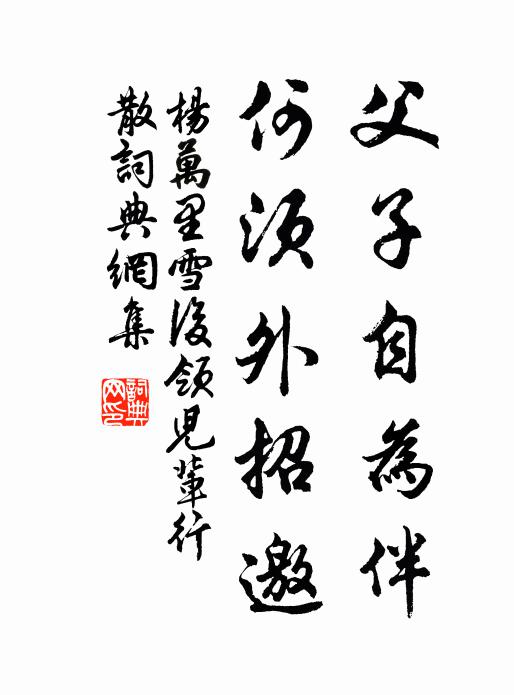 父子自為伴
何須外招邀
楊萬里雪後領兒輩行
散詞典網集
詞典網印